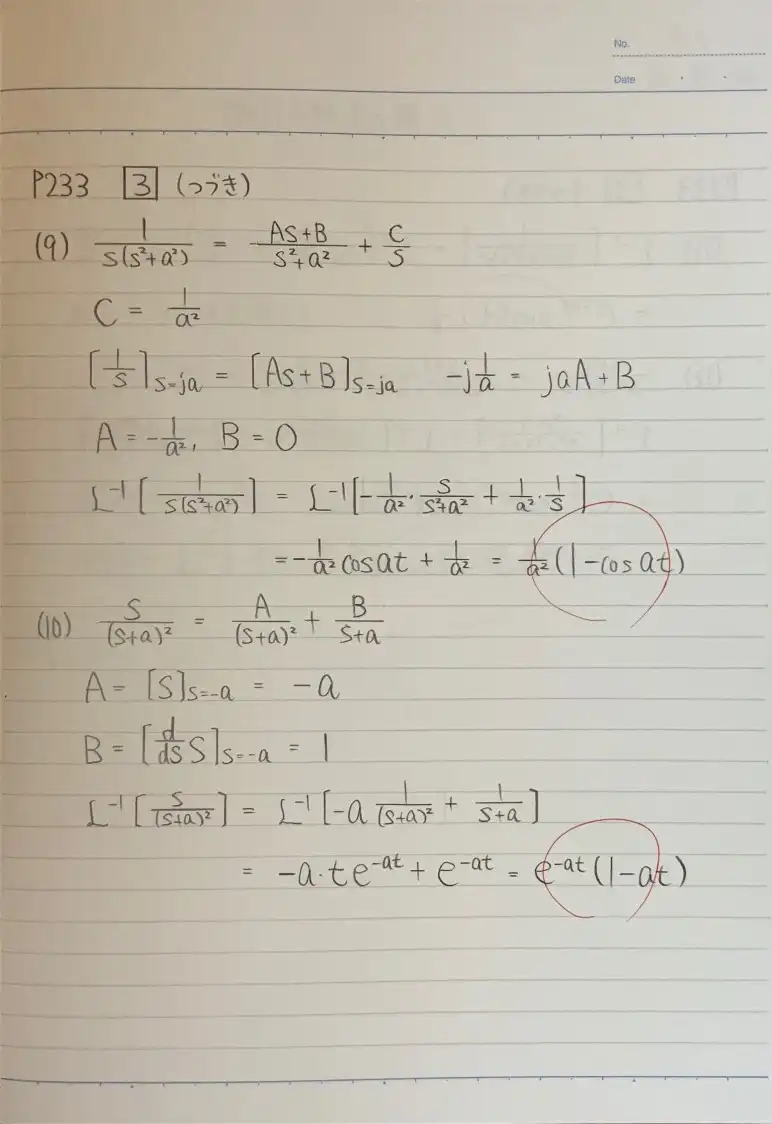 No.
Date
P233 3 (つづき)
(9) 1/(s(s²+a²)) = (As+B)/(s²+a²) + C/s
C = 1/a²
[1/s]s=ja = [As+B]s=ja -j1/a = jaA+B
A = -1/a², B = 0
L⁻¹[1/(s(s²+a²))] = L⁻¹[-1/a²・s/(s²+a²) + 1/a²・1/s]
= -1/a² cosat + 1/a² = 1/a²(1-cosat)
(10) s/(s+a)² = A/(s+a)² + B/(s+a)
A = [s]s=-a = -a
B = [d/ds s]s=-a = 1
L⁻¹[s/(s+a)²] = L⁻¹[-a 1/(s+a)² + 1/(s+a)]
= -a・te⁻ᵃᵗ + e⁻ᵃᵗ = e⁻ᵃᵗ(1-at)